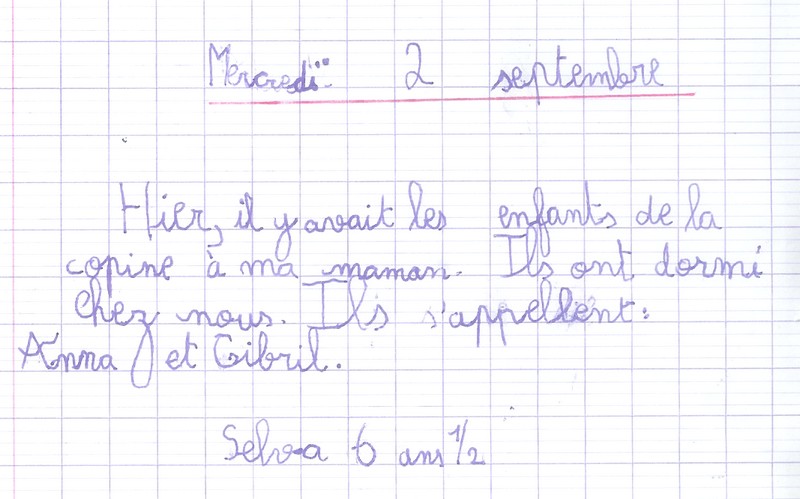 Mercredi 2 septembre
Hier, il y avait les enfants de la
copine à ma maman. Ils ont dormi
chez nous. Ils s'appellent :
Anna et Gibril.
Selva 6 ans 1/2